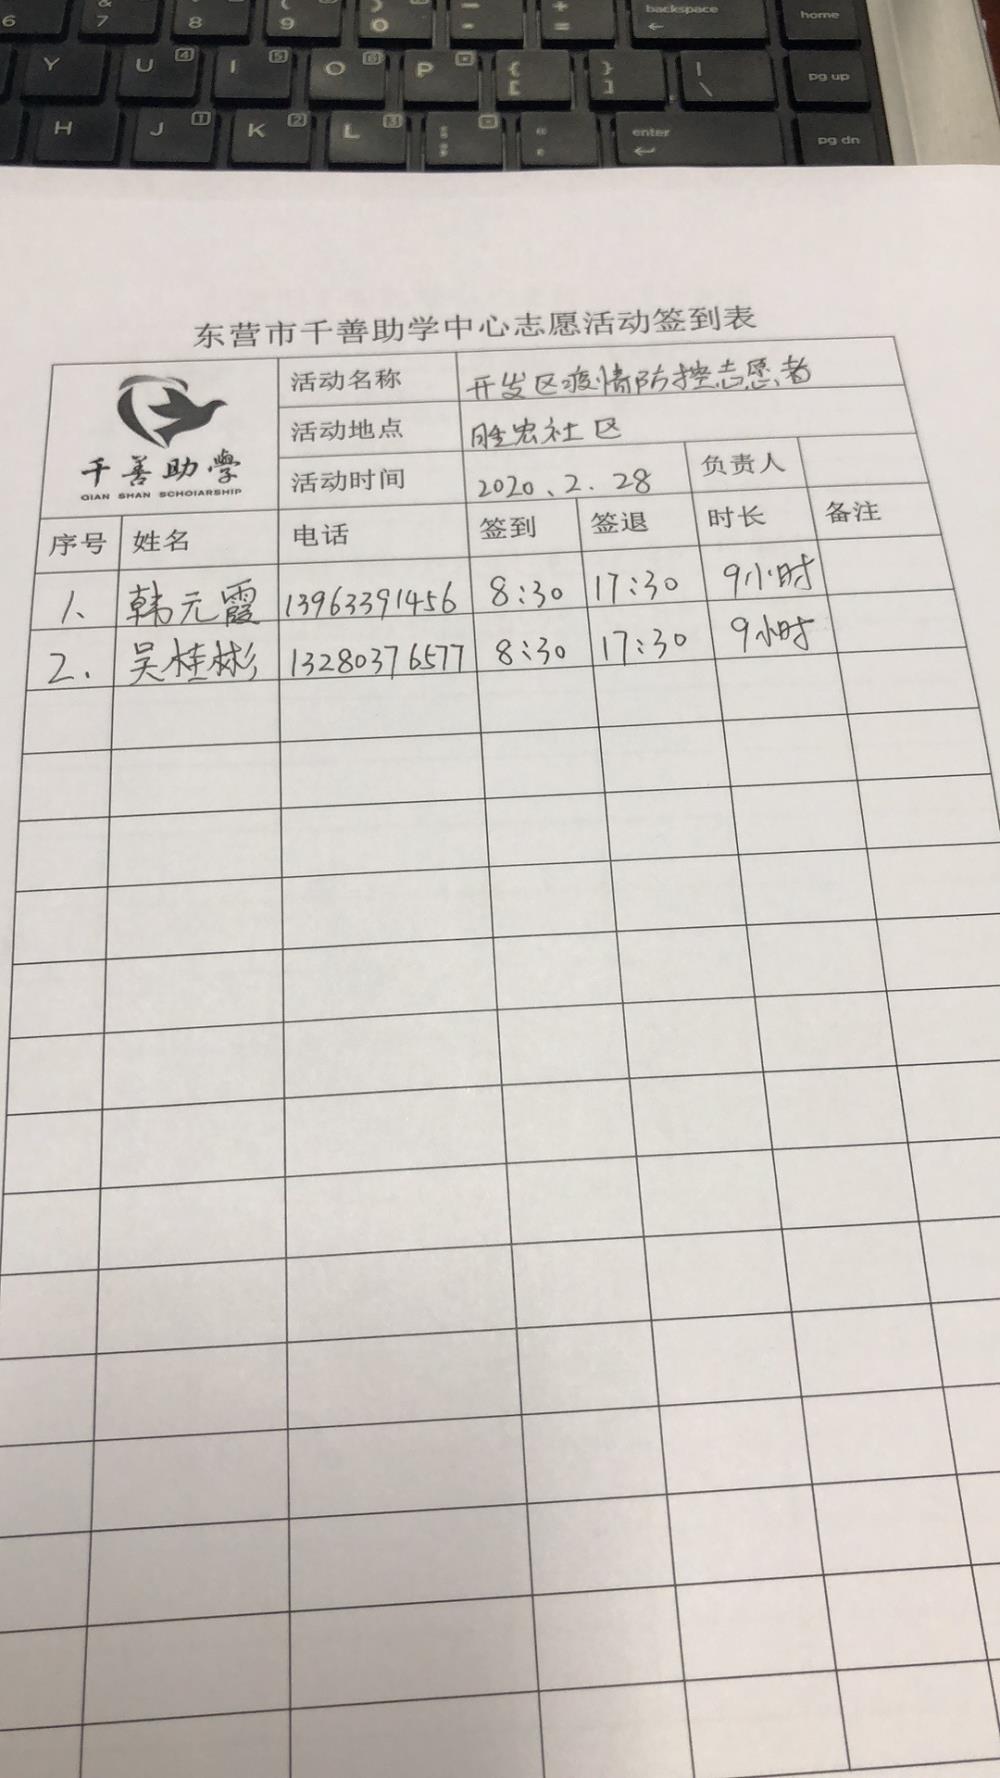 6 & 7 8 ( 9 ) 0 - + = backspace ← home
Y U 4 I 5 O 6 P * { [ } ] | \ pg up
H J 1 K 2 L 3 : ; - " enter ↵ pg dn
东营市千善助学中心志愿活动签到表
千善助學
QIAN SHAN SCHOIARSHIP
活动名称 开发区疫情防控志愿者
活动地点 胜宏社区
活动时间 2020、2.28 负责人
序号 姓名 电话 签到 签退 时长 备注
1、 韩元霞 13963391456 8:30 17:30 9小时
2. 吴桂彬 13280376577 8:30 17:30 9小时